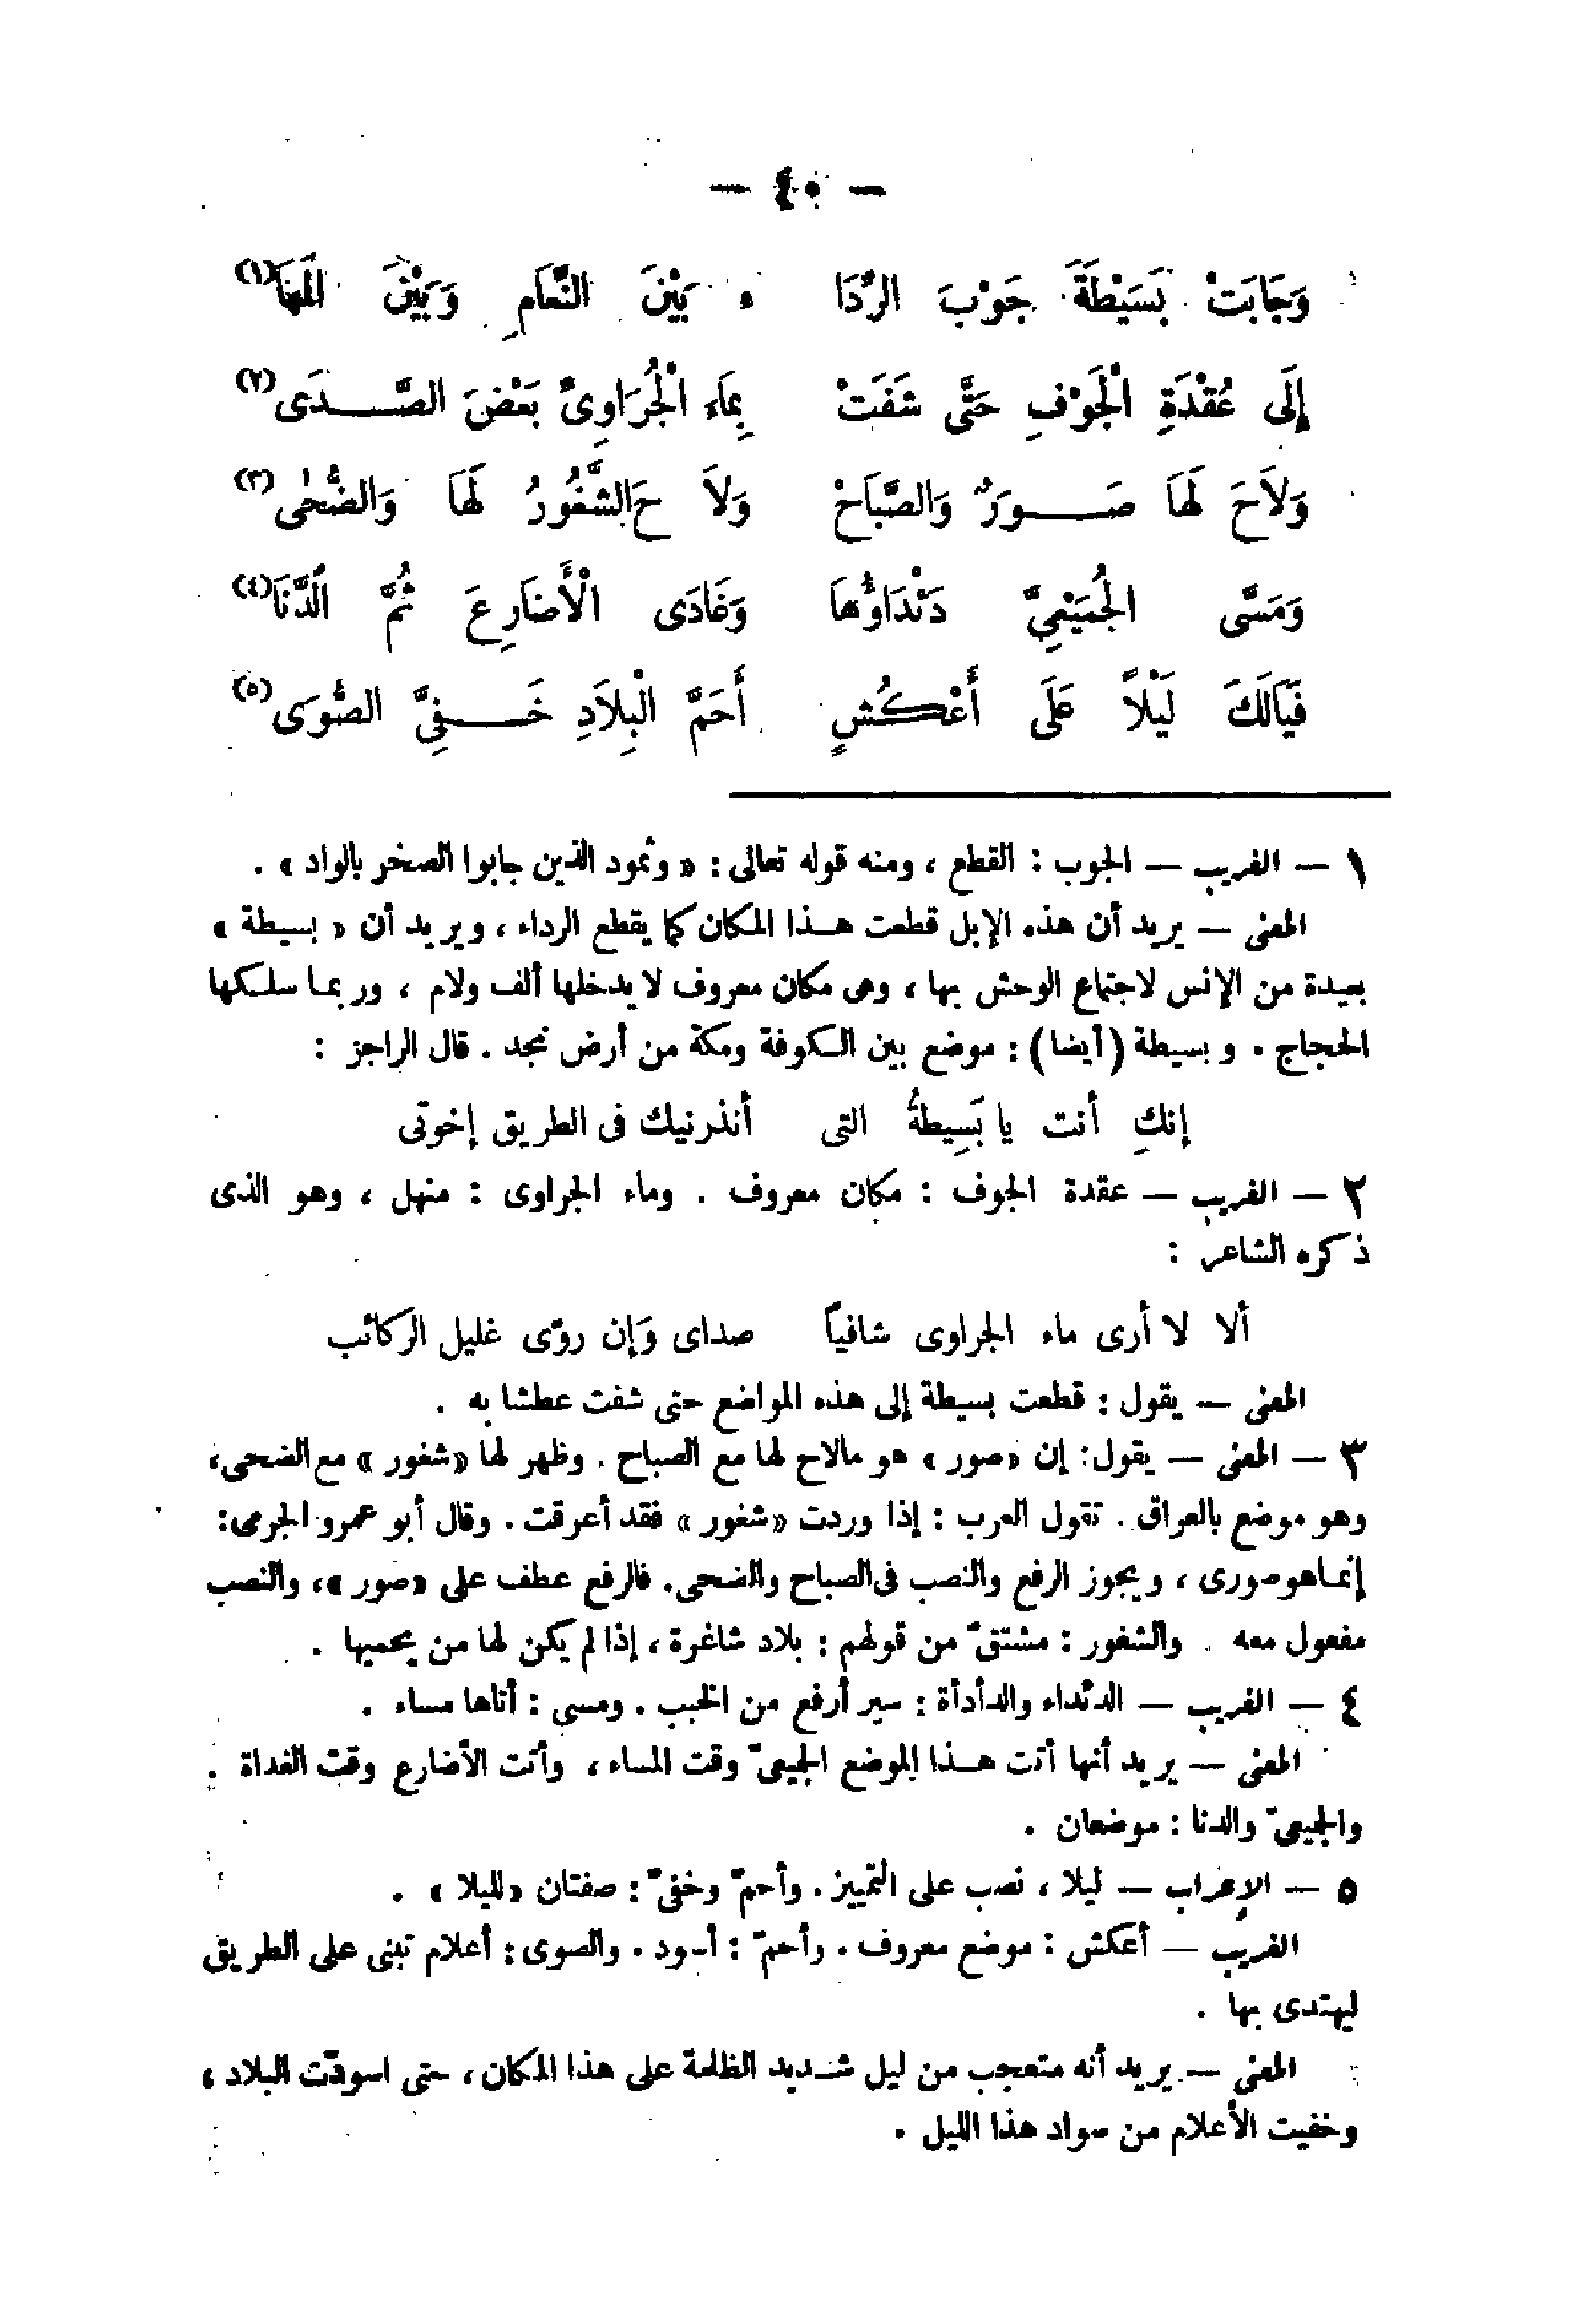 — ٤٠ —
وَجَابَتْ بَسَيْطَةَ جَوْبَ الرِّدَا ء بَيْنَ النَّعَامِ وَبَيْنَ الْمَهَا(١)
إِلَى عُقْدَةِ الْجَوْفِ حَتَّى شَفَتْ بِمَاءِ الْجُرَاوِىِّ بَعْضَ الصَّدَى(٢)
وَلاَحَ لَهَا صَوَرٌ وَالصَّبَاحْ وَلاَ حَ الشَّغُورُ لَهَا وَالضُّحٰى(٣)
وَمَسَّى الْجُمَيْعِىَّ دَنْدَاؤُهَا وَغَادَى الْأَضَارِعَ ثُمَّ الدَّنَا(٤)
فَيَالَكَ لَيْلاً عَلَى أَعْكُشٍ أَحَمَّ الْبِلاَدِ خَفِىَّ الصُّوَى(٥)
١ — الغريب — الجوب : القطع ، ومنه قوله تعالى : « وثمود الذين جابوا الصخر بالواد » .
المعنى — يريد أن هذه الإبل قطعت هذا المكان كما يقطع الرداء ، ويريد أن « بسيطة »
بعيدة من الإنس لاجتماع الوحش بها ، وهى مكان معروف لا يدخلها ألف ولام ، وربما سلكها
الحجاج . وبسيطة (أيضا) : موضع بين الكوفة ومكة من أرض نجد . قال الراجز :
إنكِ أنت يا بَسِيطةُ التى أنذرنيك فى الطريق إخوتى
٢ — الغريب — عقدة الجوف : مكان معروف . وماء الجراوى : منهل ، وهو الذى
ذكره الشاعر :
ألا لا أرى ماء الجراوى شافياً صداى وَإن روّى غليل الركائب
المعنى — يقول : قطعت بسيطة إلى هذه المواضع حتى شفت عطشا به .
٣ — المعنى — يقول : إن «صور » هو مالاح لها مع الصباح . وظهر لها «شغور » مع الضحى،
وهو موضع بالعراق . تقول العرب : إذا وردت «شغور » فقد أعرقت . وقال أبو عمرو الجرمى:
إنما هو صورى ، ويجوز الرفع والنصب فى الصباح والضحى. فالرفع عطف على «صور »، والنصب
مفعول معه . والشغور : مشتقّ من قولهم : بلاد شاغرة ، إذا لم يكن لها من يحميها .
٤ — الغريب — الدئداء والدأدأة : سير أرفع من الخبب . ومسى : أتاها مساء .
المعنى — يريد أنها أتت هذا الموضع الجيعىّ وقت المساء ، وأتت الأضارع وقت الغداة .
والجيعىّ والدنا : موضعان .
٥ — الإعراب — ليلا ، نصب على التمييز . وأحمّ وخفىّ : صفتان «لليلا » .
الغريب — أعكش : موضع معروف . وأحمّ : أسود . والصوى : أعلام تبنى على الطريق
ليهتدى بها .
المعنى — يريد أنه متعجب من ليل شديد الظلمة على هذا المكان ، حتى اسودّت البلاد ،
وخفيت الأعلام من سواد هذا الليل .